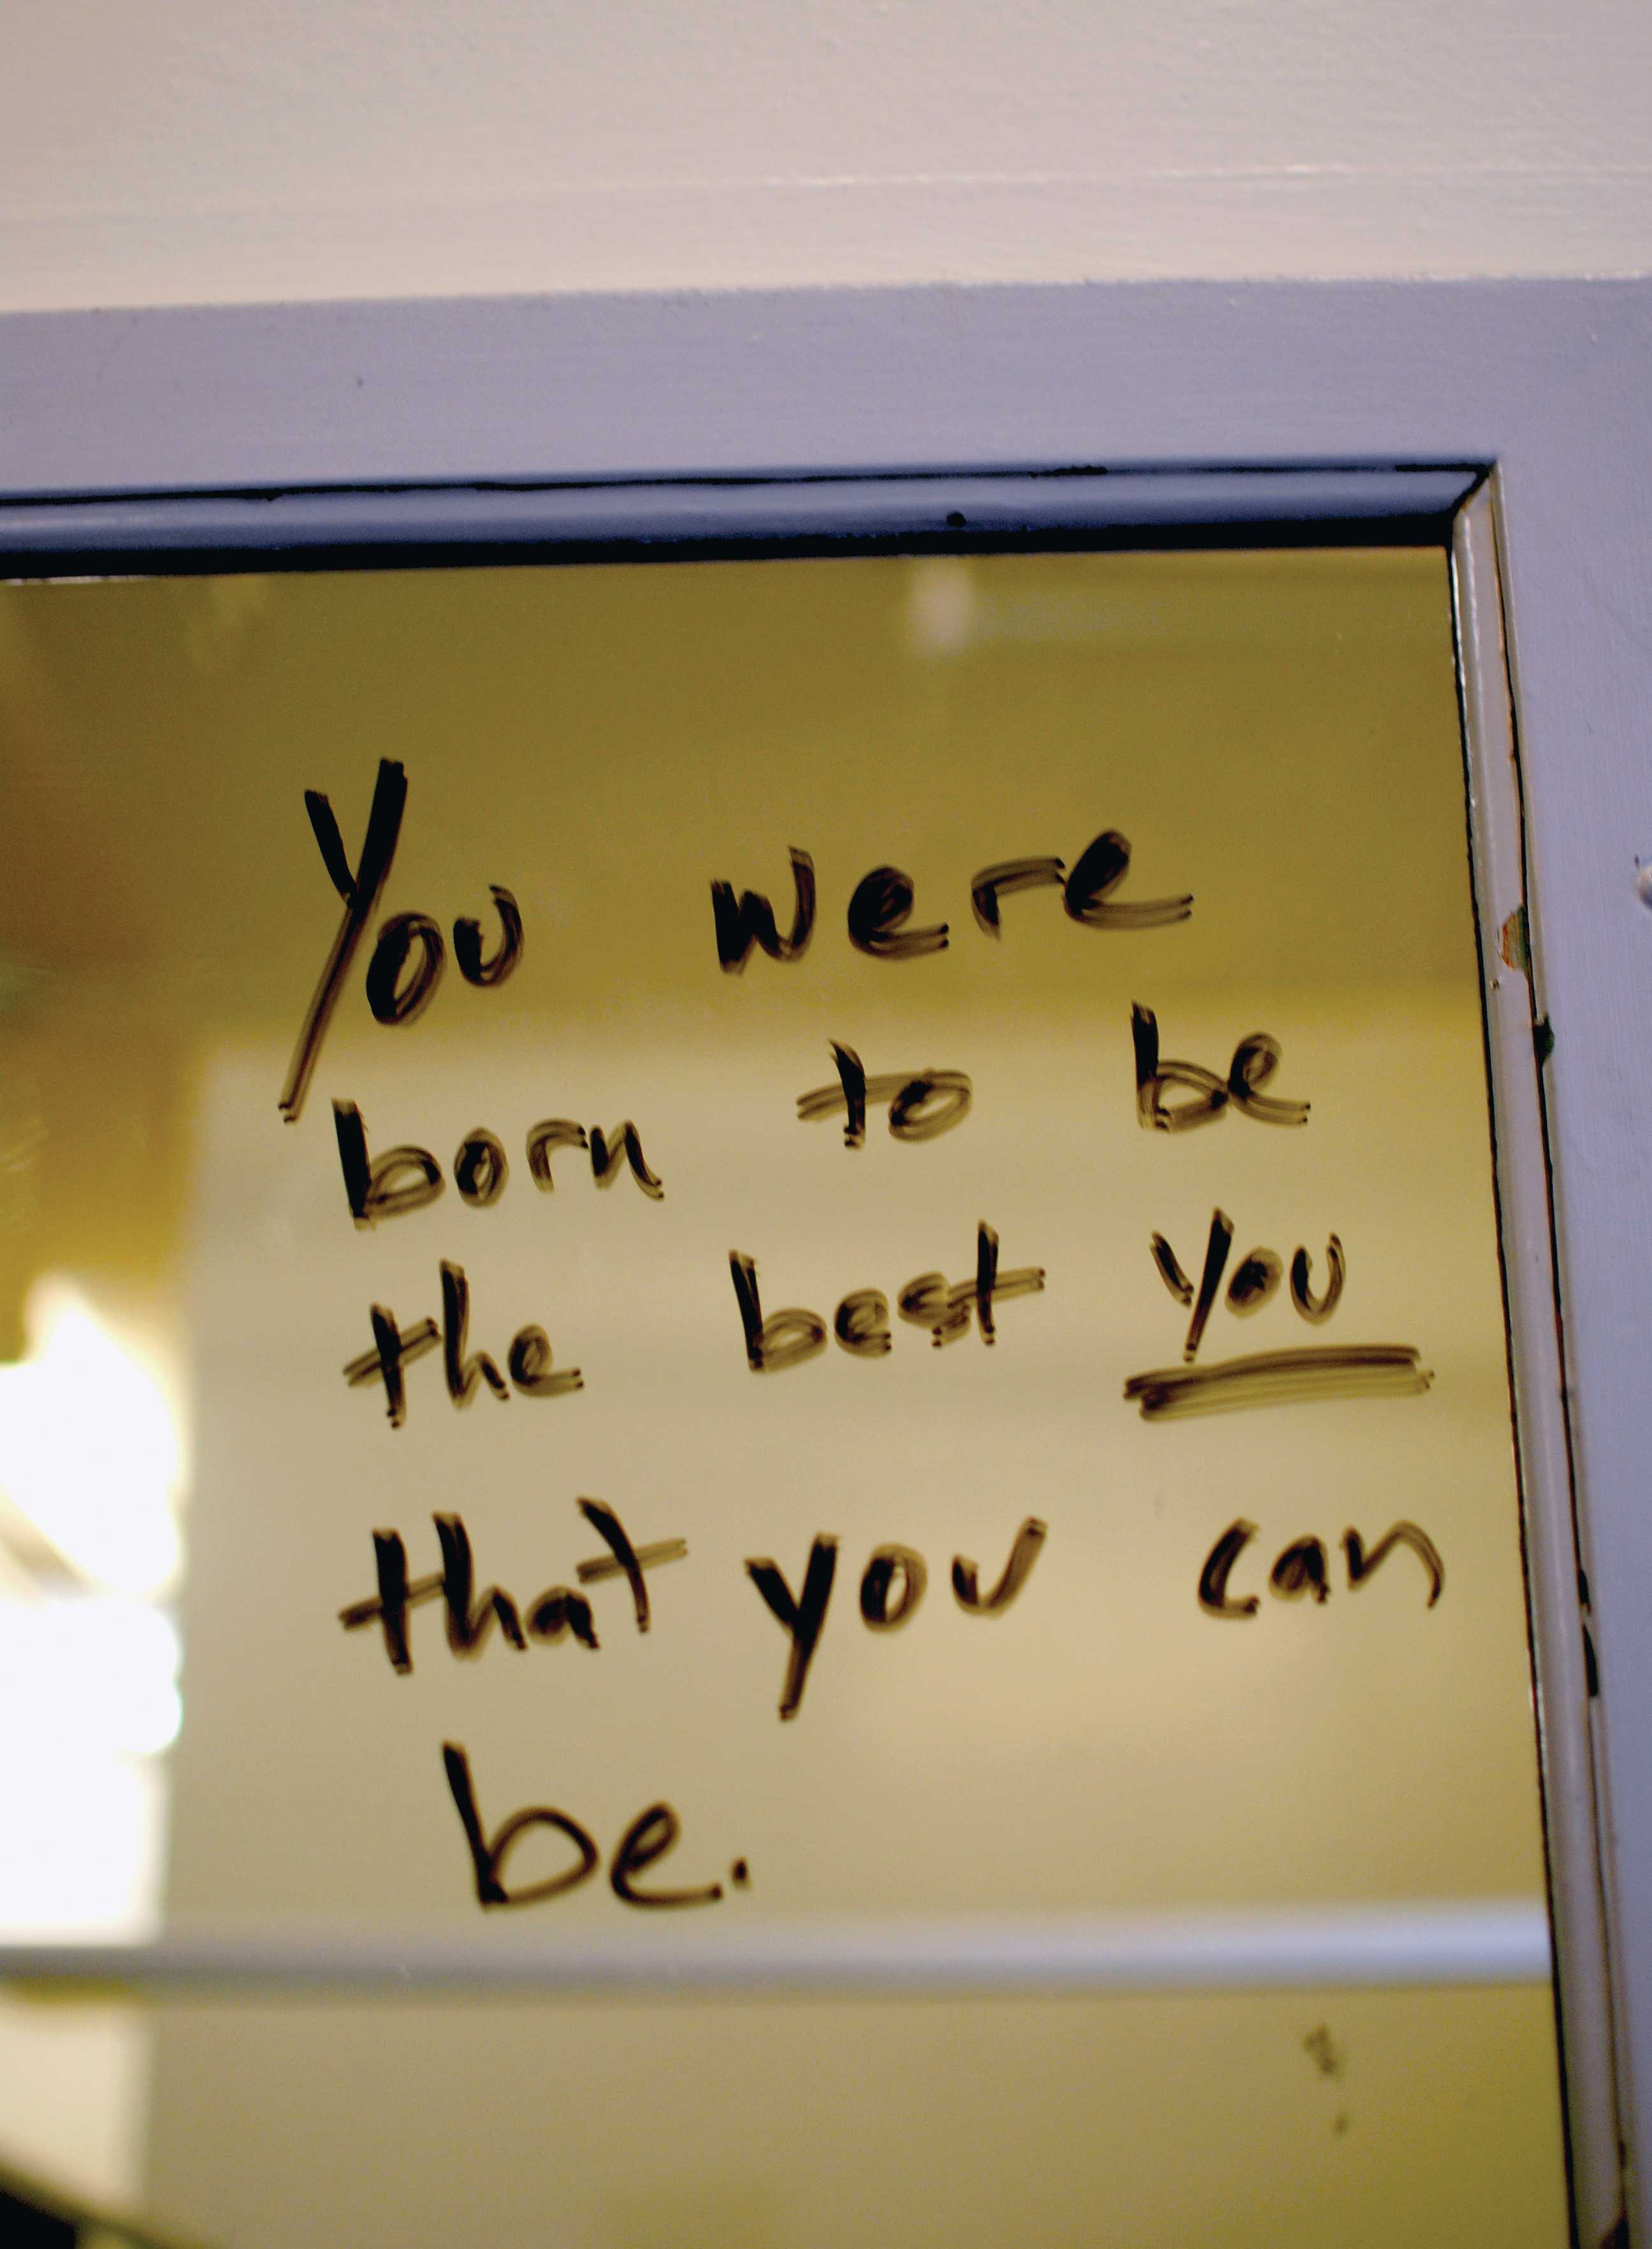 You were
born to be
the best you
that you can
be.